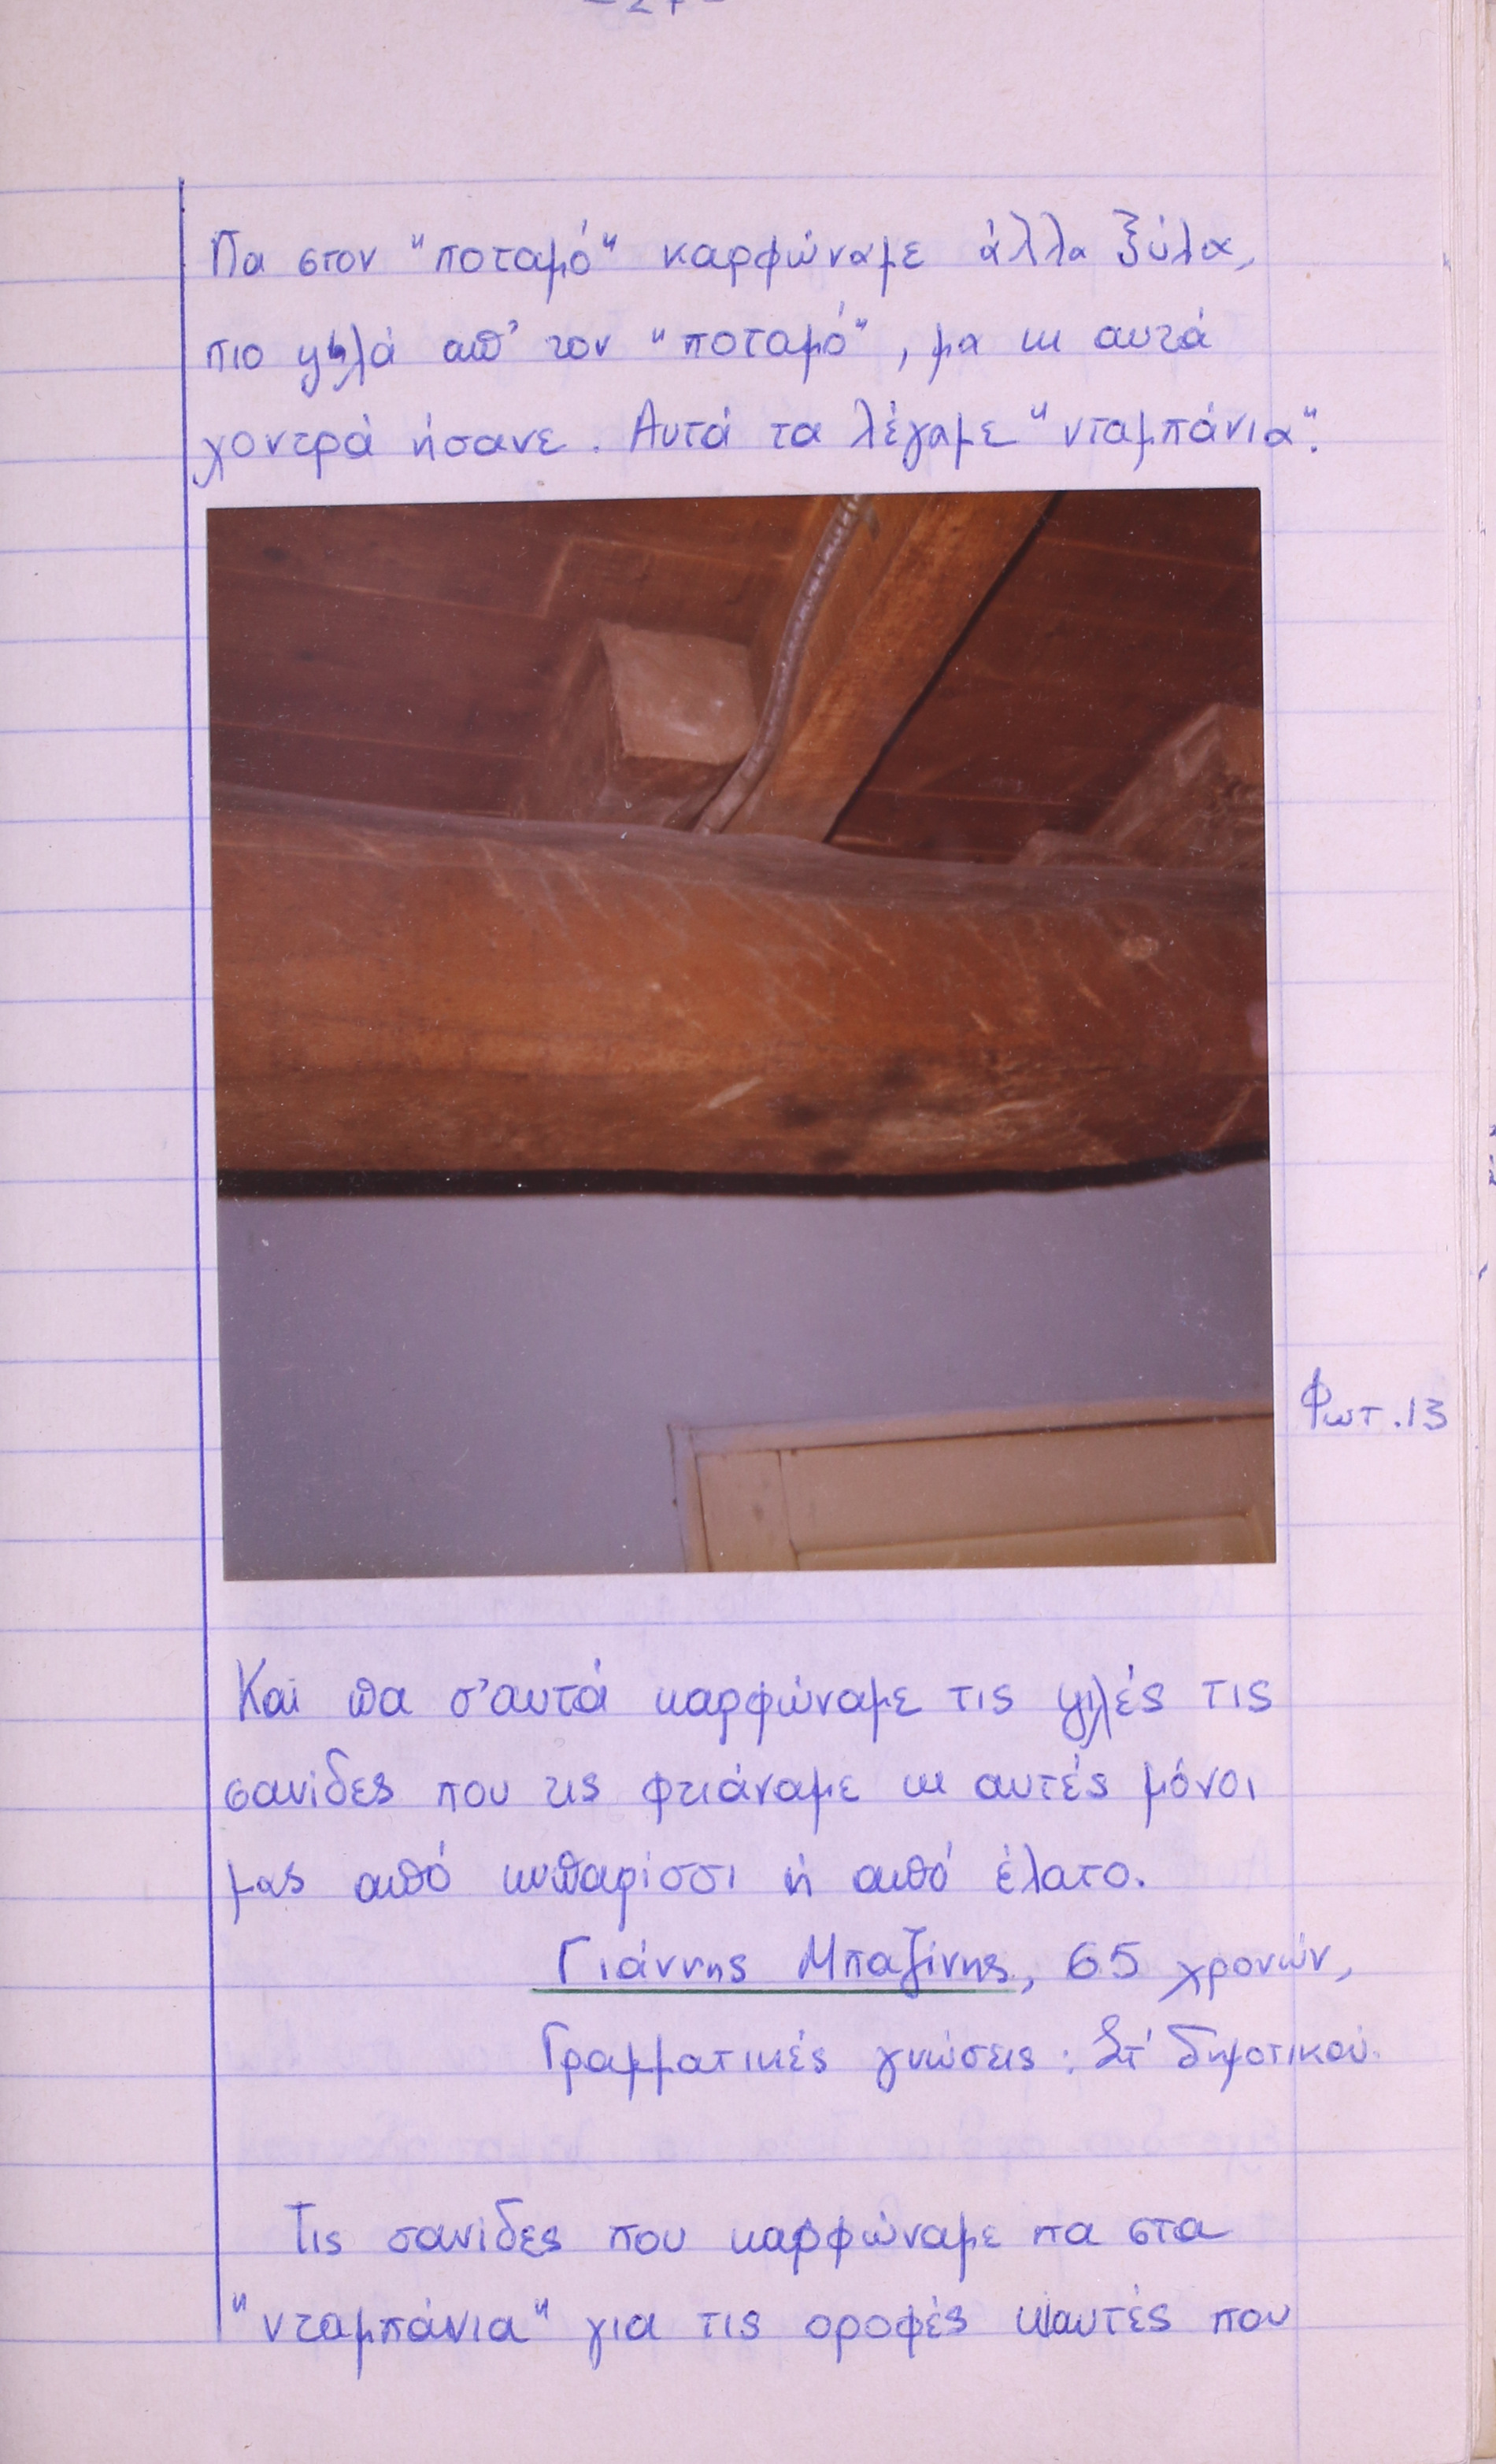 Πα στον "ποταμό" καρφώναμε άλλα ξύλα,
πιο ψιλά απ' τον "ποταμό", μα κι αυτά
χοντρά ήσανε. Αυτά τα λέγαμε "νταμπάνια".
Φωτ. 13
Και πα σ'αυτά καρφώναμε τις ψιλές τις
σανίδες που τις φτιάναμε κι αυτές μόνοι
μας από κυπαρίσσι ή από έλατο.
Γιάννης Μπαζίνης, 65 χρονών,
Γραμματικές γνώσεις: Στ' δημοτικού.
Τις σανίδες που καρφώναμε πα στα
"νταμπάνια" για τις οροφές κι αυτές που